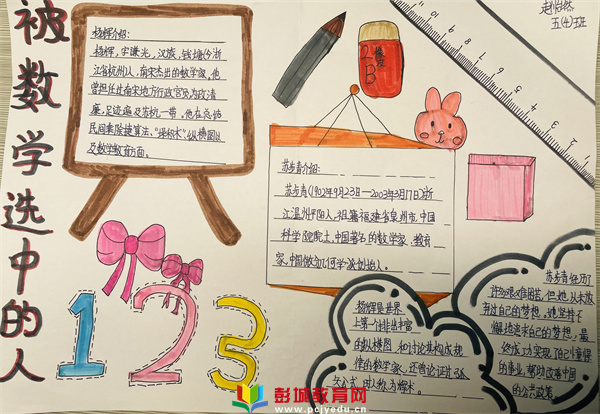 被数学选中的人
五(4)班
杨辉介绍:
杨辉,字谦光,汉族,钱塘(今浙
江省杭州)人,南宋杰出的数学家,他
曾担任过南宋地方行政官员,为政清
廉,足迹遍及苏杭一带,他在总结
民间乘除捷算法、"垛积术"、纵横图以
及数学教育方面。
2B
橡皮
苏步青介绍:
苏步青(1902年9月23日—2003年3月17日)浙
江温州平阳人,祖籍福建省泉州市,中国
科学院院士,中国著名的数学家、教育
家,中国微分几何学派创始人。
123
杨辉是世界
上第一个排出丰富
的纵横图和讨论其构成规
律的数学家,还曾论证过弧
矢公式,时人称为辉术。
苏步青经历了
许多艰难困苦,但他从未放
弃过自己的梦想,他坚持不
懈地追求自己的梦想,最
终成功实现了自己童保
的事业,帮助改革中国
的公式政策。
彭城教育网
www.pcjyedu.cn